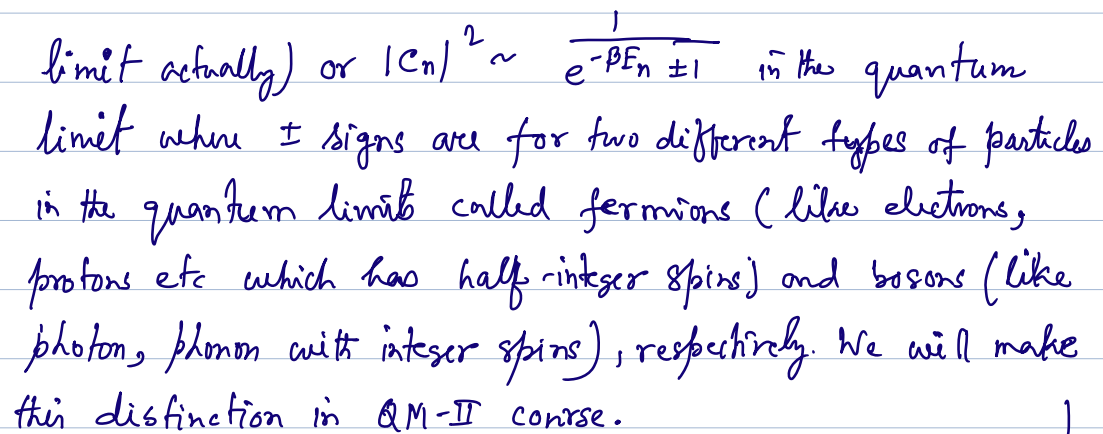 limit actually) or |Cn|² ~ 1/(e^{-βEn} ±1) in the quantum
limit where ± signs are for two different types of particles
in the quantum limit called fermions (like electrons,
protons etc which has half-integer spins) and bosons (like
photon, phonon with integer spins), respectively. We will make
this distinction in QM-II course.